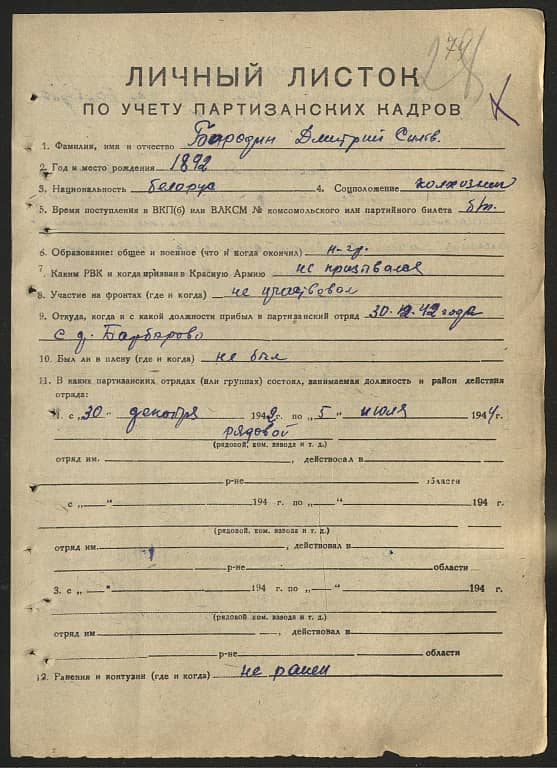 74
28
ЛИЧНЫЙ ЛИСТОК
ПО УЧЕТУ ПАРТИЗАНСКИХ КАДРОВ
1. Фамилия, имя и отчество Бородин Дмитрий Силв.
2. Год и место рождения 1892
3. Национальность белорус 4. Соцположение колхозник
5. Время поступления в ВКП(б) или ВЛКСМ № комсомольского или партийного билета б/п.
6. Образование: общее и военное (что и когда окончил) н-гр.
7. Каким РВК и когда призван в Красную Армию не призывался
8. Участие на фронтах (где и когда) не участвовал
9. Откуда, когда и с какой должности прибыл в партизанский отряд 30.12.42 года
с д. Барбарово
10. Был ли в плену (где и когда) не был
11. В каких партизанских отрядах (или группах) состоял, занимаемая должность и район действия
отряда:
1 с „30" декабря 1942 г. по „5" июля 1944 г.
рядовой
(рядовой, ком. взвода и т. д.)
отряд им. , действовал в
р-не области
с „ " 194 г. по „ " 194 г.
(рядовой, ком. взвода и т. д.)
отряд им. , действовал в
р-не области
3. с „ " 194 г. по „ " 194 г.
(рядовой, ком. взвода и т. д.)
отряд им , действовал в
р-не области
12. Ранения и контузии (где и когда) не ранен